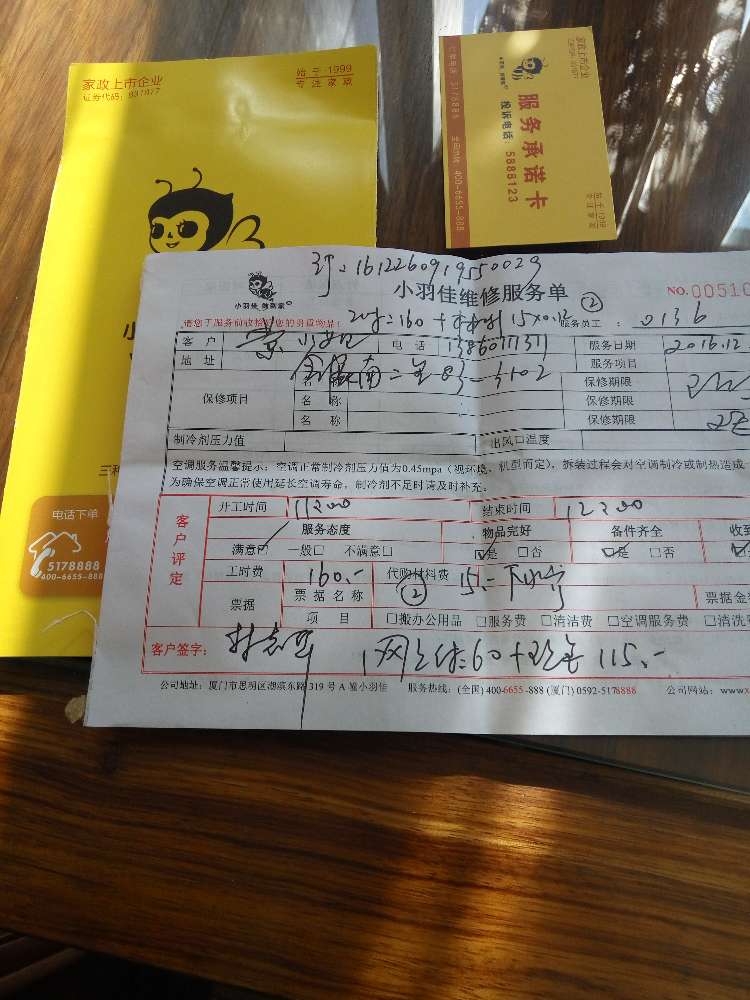 家政上市企业
证券代码：831877
始于·1999
专注家政
电话下单
5178888
400-6655-888
家政上市企业
服务承诺卡
投诉电话：5888123
始于·1999
专注家政
全国热线：400-6655-888
1612260919550029
小羽佳 做到家
小羽佳维修服务单
NO.00510
②
请您于服务前收捡好您的贵重物品！
服务员工： 0136
客 户
电 话
服务日期 2016.12
地 址
服务项目
保修项目
名 称
保修期限
名 称
保修期限
名 称
保修期限
制冷剂压力值
出风口温度
空调服务温馨提示：空调正常制冷剂压力值为0.45mpa（视环境、机型而定），拆装过程会对空调制冷或制热造成
为确保空调正常使用延长空调寿命，制冷剂不足时请及时补充。
客户评定
开工时间 11:00
结束时间 12:00
服务态度
物品完好
备件齐全
收到
满意☑ 一般□ 不满意□
☑是 □否
☑是 □否
工时费 160.-
代购材料费 15.-
②
票据
票据名称
票据金
项 目
□搬办公用品 □服务费 □清洁费 □空调服务费 □清洗
客户签字：
60+现金115.-
公司地址：厦门市思明区湖滨东路319号A幢小羽佳 服务热线：(全国) 400-6655-888 (厦门) 0592-5178888 公司网站：www.x